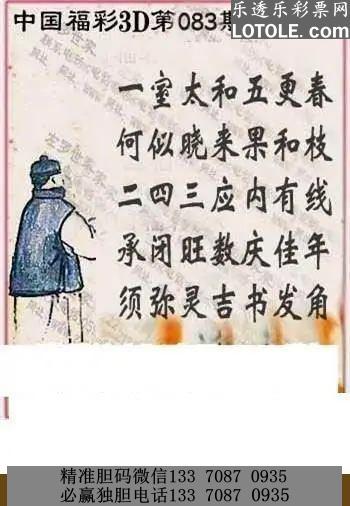 乐透乐彩票网
中国福彩3D第083期
LOTOLE.COM
一室太和五更春
何似晓来果和枝
二四三应内有线
承闭旺数庆佳年
须弥灵吉书发角
精准胆码微信133 7087 0935
必赢独胆电话133 7087 0935